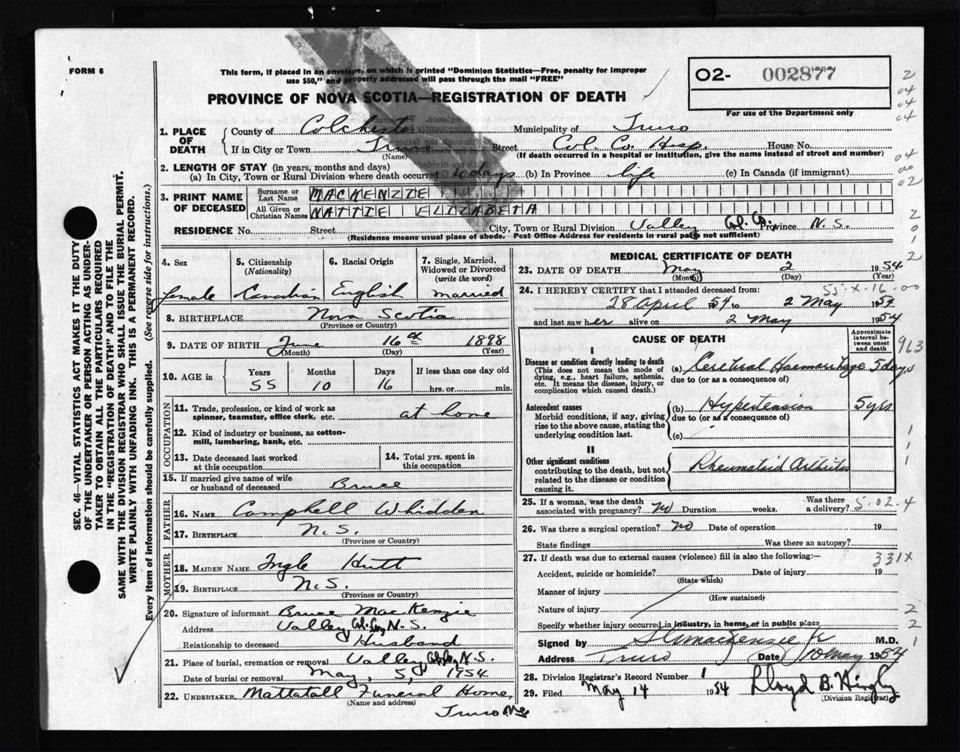 FORM 6
This form, if placed in an envelope, on which is printed "Dominion Statistics—Free, penalty for improper
use $50," and properly addressed will pass through the mail "FREE"
PROVINCE OF NOVA SCOTIA—REGISTRATION OF DEATH
O2- 002877
For use of the Department only
1. PLACE OF DEATH
County of Colchester Municipality of Truro
If in City or Town Truro Street Col. Co. Hosp. House No.
(Name) (If death occurred in a hospital or institution, give the name instead of street and number)
2. LENGTH OF STAY (in years, months and days)
(a) In City, Town or Rural Division where death occurred days (b) In Province life (c) In Canada (if immigrant)
3. PRINT NAME OF DECEASED
Surname or Last Name MACKENZIE
All Given or Christian Names HATTIE ELIZABETH
RESIDENCE No. Street City, Town or Rural Division Valley Col. Co. Province N.S.
(Residence means usual place of abode. Post Office Address for residents in rural parts not sufficient)
4. Sex 5. Citizenship (Nationality) 6. Racial Origin 7. Single, Married, Widowed or Divorced (write the word)
female Canadian English married
8. BIRTHPLACE Nova Scotia
(Province or Country)
9. DATE OF BIRTH June 16th 1898
(Month) (Day) (Year)
10. AGE in Years Months Days If less than one day old
55 10 16 hrs. or min.
OCCUPATION
11. Trade, profession, or kind of work as spinner, teamster, office clerk, etc. at home
12. Kind of industry or business, as cotton-mill, lumbering, bank, etc.
13. Date deceased last worked at this occupation
14. Total yrs. spent in this occupation
15. If married give name of wife or husband of deceased Bruce
FATHER
16. NAME Campbell Whidden
17. BIRTHPLACE N.S.
(Province or Country)
MOTHER
18. MAIDEN NAME Ingle Hutt
19. BIRTHPLACE N.S.
(Province or Country)
20. Signature of informant Bruce MacKenzie
Address Valley Col. Co. N.S.
Relationship to deceased Husband
21. Place of burial, cremation or removal Valley Col. Co. N.S.
Date of burial or removal May, 5, 1954
22. UNDERTAKER Mattatall Funeral Home,
(Name and address)
Truro NS
MEDICAL CERTIFICATE OF DEATH
23. DATE OF DEATH May 2 1954
(Month) (Day) (Year)
55-X-16-00
24. I HEREBY CERTIFY that I attended deceased from:
28 April 1954 to 2 May 1954
and last saw her alive on 2 May 1954
CAUSE OF DEATH
Approximate interval between onset and death
963
I
Disease or condition directly leading to death
(This does not mean the mode of dying, e.g., heart failure, asthenia, etc. It means the disease, injury, or complication which caused death.)
(a) Cerebral Haemorrhage 5 days
due to (or as a consequence of)
Antecedent causes
Morbid conditions, if any, giving rise to the above cause, stating the underlying condition last.
(b) Hypertension 5 yrs
due to (or as a consequence of)
(c)
II
Other significant conditions
contributing to the death, but not related to the disease or condition causing it.
Rheumatoid Arthritis
25. If a woman, was the death associated with pregnancy? No Duration weeks. Was there a delivery?
5-02.4
26. Was there a surgical operation? No Date of operation 19
State findings Was there an autopsy?
27. If death was due to external causes (violence) fill in also the following:—
331X
Accident, suicide or homicide? Date of injury 19
(State which)
Manner of injury
(How sustained)
Nature of injury
Specify whether injury occurred in industry, in home, or in public place,
Signed by M.D.
Address Truro Date 10 May 1954
28. Division Registrar's Record Number 1
29. Filed May 14 1954 Lloyd B.
(Division Registrar)
SEC. 46—VITAL STATISTICS ACT MAKES IT THE DUTY
OF THE UNDERTAKER OR PERSON ACTING AS UNDER-
TAKER TO OBTAIN ALL THE PARTICULARS REQUIRED
IN THE "REGISTRATION OF DEATH" AND TO FILE THE
SAME WITH THE DIVISION REGISTRAR WHO SHALL ISSUE THE BURIAL PERMIT.
WRITE PLAINLY WITH UNFADING INK. THIS IS A PERMANENT RECORD.
Every item of information should be carefully supplied. (See reverse side for instructions.)